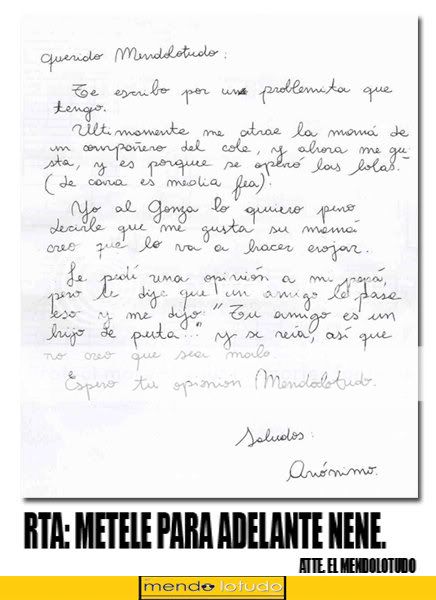 Querido Mendolotudo:
Te escribo por un problemita que
tengo.
Ultimamente me atrae la mamá de
un compañero del cole, y ahora me gu
sta, y es porque se operó las lolas.
(de cara es media fea).
Yo al Gonza lo quiero pero
decirle que me gusta su mamá
creo que lo va a hacer enojar.
Le pedí una opinión a mi papá,
pero le dije que un amigo le pasa
eso y me dijo "Tu amigo es un
hijo de puta..." y se reía, así que
no creo que sea malo.
Espero tu opinion Mendolotudo.
Saludos:
Anónimo.
RTA: METELE PARA ADELANTE NENE.
ATTE. EL MENDOLOTUDO
mendolotudo